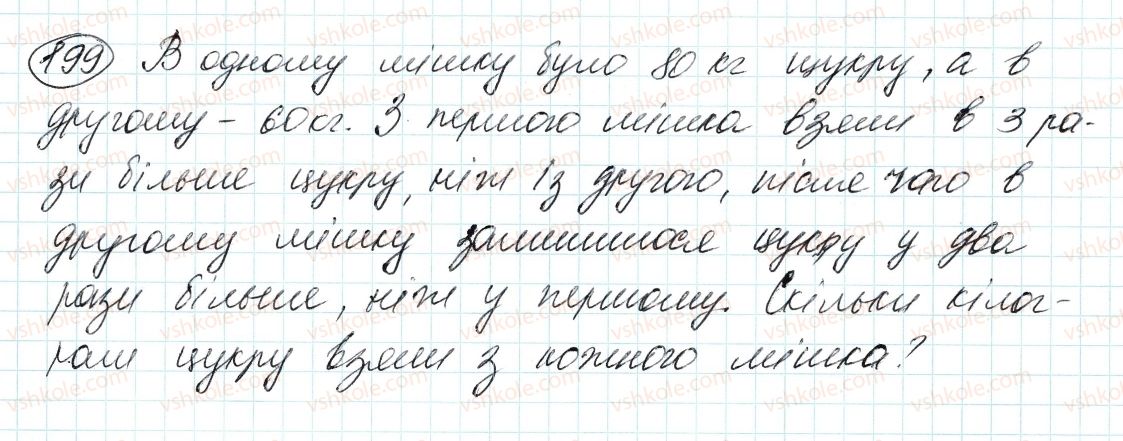 199 В одному мішку було 80 кг цукру, а в
другому – 60 кг. З першого мішка взяли в 3 ра-
зи більше цукру, ніж із другого, після чого в
другому мішку залишилося цукру у два
рази більше, ніж у першому. Скільки кілог-
рам цукру взяли з кожного мішка?
vshkole.com